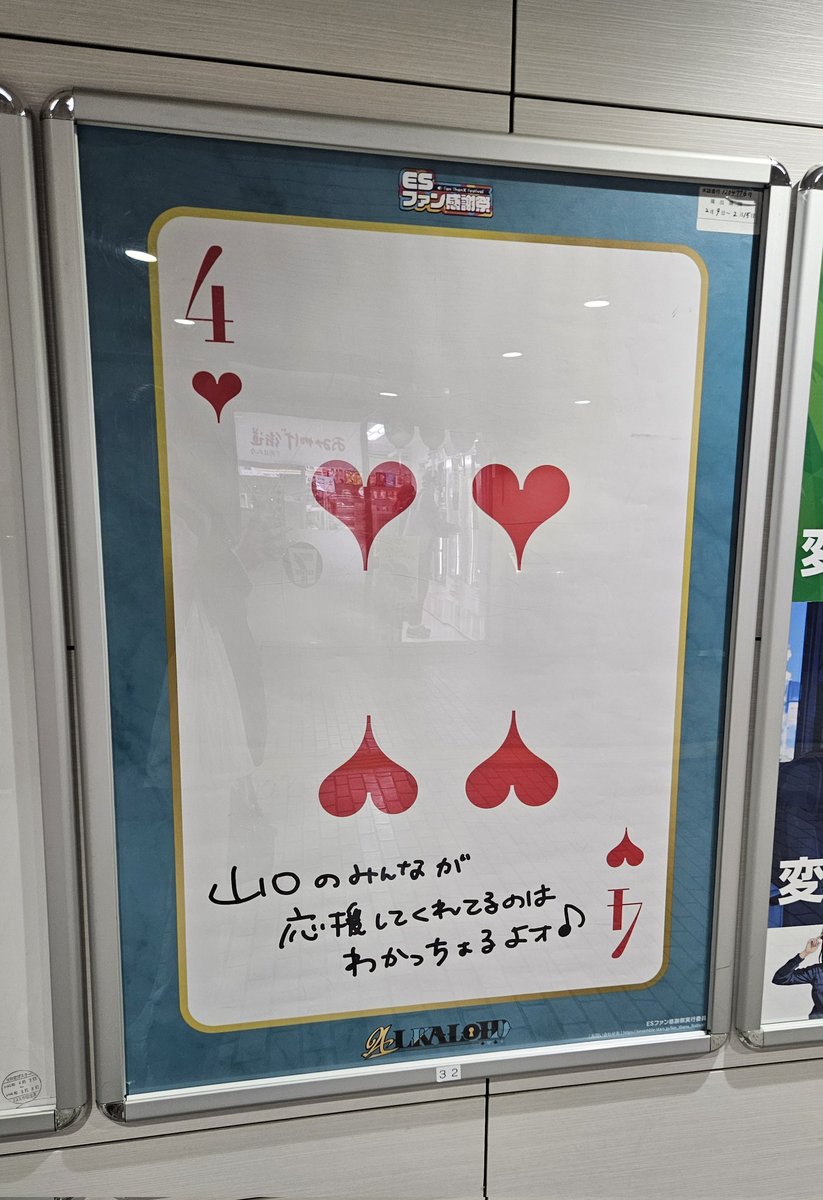 ES
ファン感謝祭
4
山口のみんなが
応援してくれてるのは
わかっちょるよォ♪
4
ESファン感謝祭実行委員
ALKALOID
32
変
変